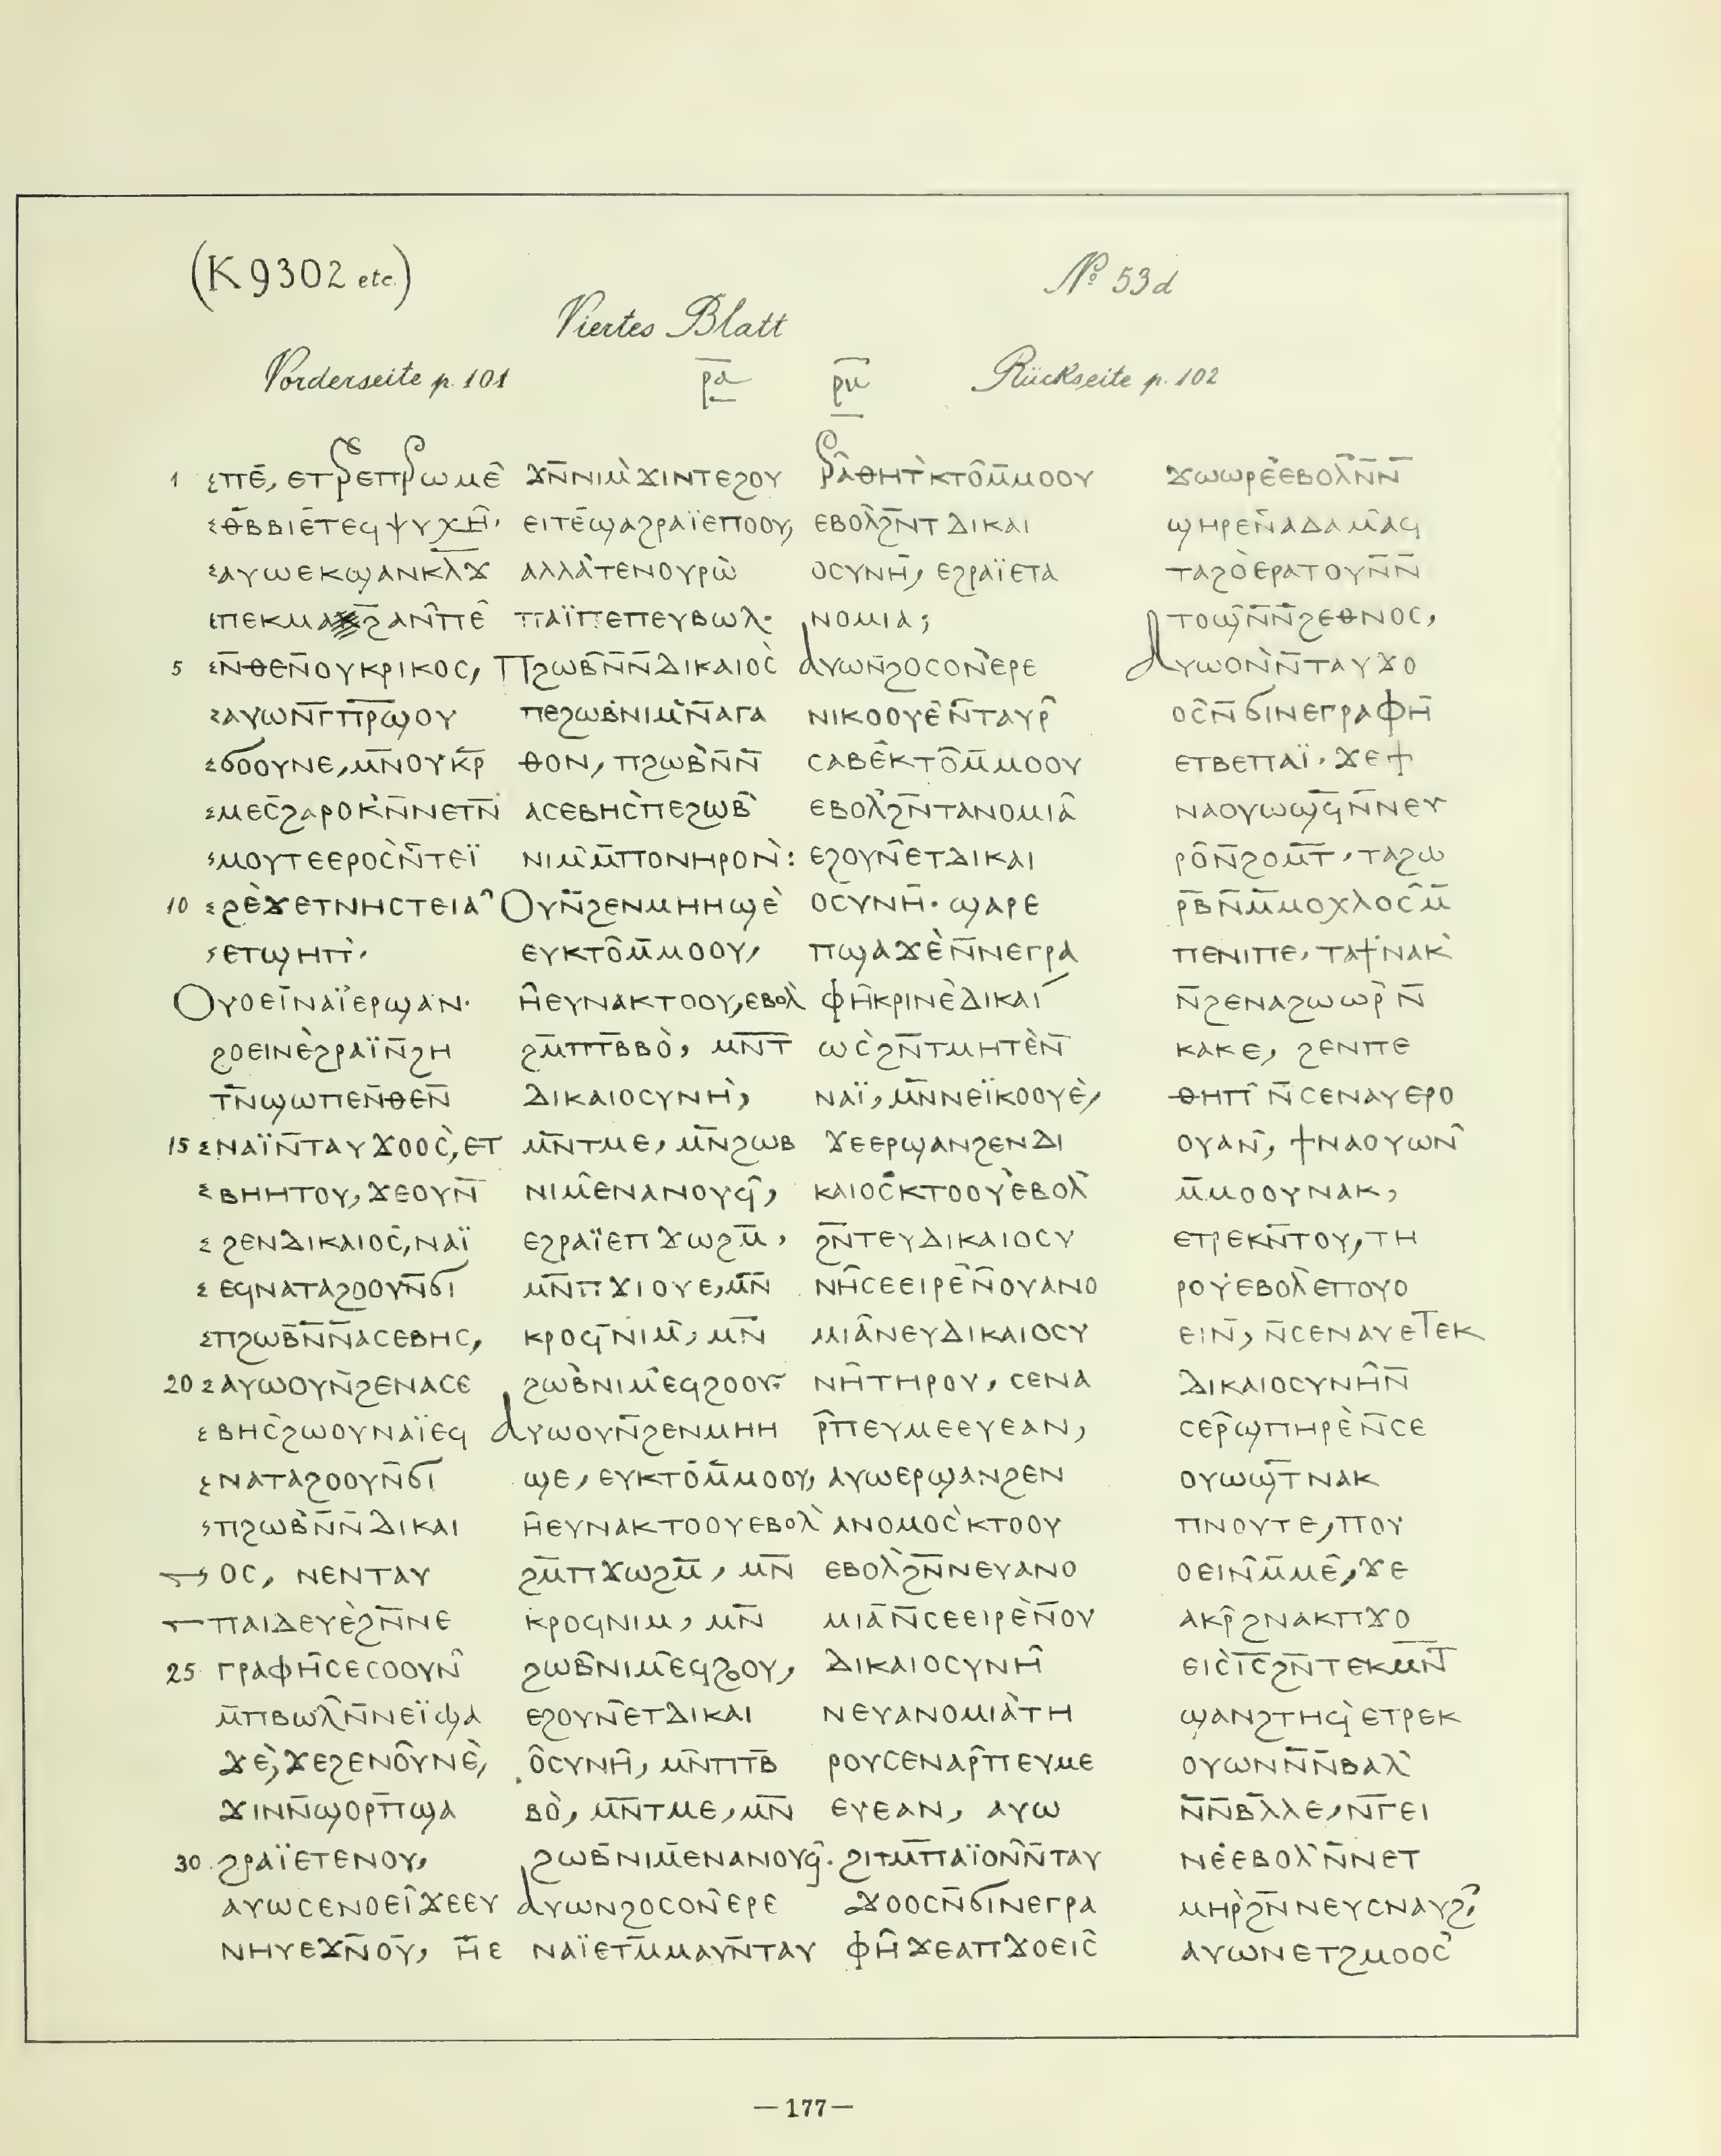 (K 9302 etc.)
№ 53d
Viertes Blatt
Vorderseite p. 101
ⲣ̅ⲁ̅
ⲣ̅ⲃ̅
Rückseite p. 102
1 >ⲡⲉ̄, ⲉⲧⲣⲉⲡⲣⲱⲙⲉ̂
>ⲑ̄ⲃⲃⲓⲉ̄ⲧⲉϥⲯⲩⲭⲏ̂·
>ⲁⲩⲱⲉⲕϣⲁⲛⲕⲗ̅ϫ̅
>ⲡⲉⲕⲙⲁϩ̅ⲁⲛ̂ⲡⲉ̂
5 >ⲛ̄ⲑⲉⲛ̄ⲟⲩⲕⲣⲓⲕⲟⲥ,
>ⲁⲩⲱⲛ̅ⲅ̅ⲡ̅ⲣ̅ϣⲟⲩ
>ϭⲟⲟⲩⲛⲉ, ⲙ̅ⲛ̅ⲟⲩⲕ̅ⲣ̅
>ⲙⲉⲥ̄ϩⲁⲣⲟⲕ̀ⲛ̄ⲛⲉⲧⲛ̄
>ⲙⲟⲩⲧⲉⲉⲣⲟⲥ̀ⲛ̄ⲧⲉⲓ̈
10 >ϩⲉ̀ϫⲉⲧⲛⲏⲥⲧⲉⲓⲁ̂
>ⲉⲧϣⲏⲡ̀·
ⲟⲩⲟⲉⲓ̄ⲛⲁⲓ̈ⲉⲣϣⲁⲛ·
ϩⲟⲉⲓⲛⲉ̀ϩⲣⲁⲓ̈ⲛ̄ϩⲏ
ⲧ̅ⲛ̅ϣⲱⲡⲉⲛ̄ⲑⲉⲛ̄
15 >ⲛⲁⲓ̈ⲛ̄ⲧⲁⲩϫⲟⲟⲥ̀, ⲉⲧ
>ⲃⲏⲏⲧⲟⲩ, ϫⲉⲟⲩⲛ̄
>ϩⲉⲛⲇⲓⲕⲁⲓⲟⲥ̀, ⲛⲁⲓ̈
>ⲉϥⲛⲁⲧⲁϩⲟⲟⲩⲛ̄ϭⲓ
>ⲡϩⲱⲃ̄ⲛ̄ⲛ̄ⲁⲥⲉⲃⲏⲥ,
20 >ⲁⲩⲱⲟⲩⲛ̄ϩⲉⲛⲁⲥⲉ
>ⲃⲏⲥ̀ϩⲱⲟⲩⲛⲁⲓ̈ⲉϥ
>ⲛⲁⲧⲁϩⲟⲟⲩⲛ̄ϭⲓ
>ⲡϩⲱⲃ̀ⲛ̄ⲛ̄ⲇⲓⲕⲁⲓ
>ⲟⲥ, ⲛⲉⲛⲧⲁⲩ
ⲡⲁⲓⲇⲉⲩⲉ̀ϩ̅ⲛ̅ⲛⲉ
25 ⲅⲣⲁⲫⲏ̂ⲥⲉⲥⲟⲟⲩⲛ̂
ⲙ̄ⲡⲃⲱⲗ̂ⲛ̄ⲛⲉⲓ̈ϣⲁ
ϫⲉ̀, ϫⲉϩⲉⲛⲟ̂ⲩⲛⲉ̀,
ϫⲓⲛⲛ̄ϣⲟⲣ̅ⲡ̅ϣⲁ
30 ϩⲣⲁⲓ̈ⲉⲧⲉⲛⲟⲩ,
ⲁⲩⲱⲥⲉⲛⲟⲉⲓ̂ϫⲉⲉⲩ
ⲛⲏⲩⲉϫⲛ̄ⲟⲩ̀, ⲏ̄ⲉ
ϫⲛ̄ⲛⲓⲙ̀ϫⲓⲛⲧⲉϩⲟⲩ
ⲉⲓⲧⲉ̄ϣⲁϩⲣⲁⲓ̈ⲉⲡⲟⲟⲩ,
ⲁⲗⲗⲁ̀ⲧⲉⲛⲟⲩⲣⲱ̀
ⲡⲁⲓ̈ⲡⲉⲡⲉⲩⲃⲱⲗ·
ⲡϩⲱⲃ̄ⲛ̄ⲛ̄ⲇⲓⲕⲁⲓⲟⲥ̀
ⲡⲉϩⲱⲃ̀ⲛⲓⲙ̀ⲛ̄ⲁⲅⲁ
ⲑⲟⲛ, ⲡϩⲱⲃ̀ⲛ̄ⲛ̄
ⲁⲥⲉⲃⲏⲥ̀ⲡⲉϩⲱⲃ̂
ⲛⲓⲙ̀ⲙ̄ⲡⲟⲛⲏⲣⲟⲛ̀:
ⲟⲩⲛ̄ϩⲉⲛⲙⲏⲏϣⲉ̀
ⲉⲩⲕⲧⲟ̂ⲙ̄ⲙⲟⲟⲩ,
ⲏ̂ⲉⲩⲛⲁⲕⲧⲟⲟⲩ, ⲉⲃⲟⲗ
ϩ̅ⲙ̅ⲡ̅ⲧ̅ⲃⲃⲟ̀, ⲙ̅ⲛ̅ⲧ̅
ⲇⲓⲕⲁⲓⲟⲥⲩⲛⲏ̀,
ⲙ̅ⲛ̅ⲧⲙⲉ, ⲙ̅ⲛ̅ϩⲱⲃ
ⲛⲓⲙ̀ⲉⲛⲁⲛⲟⲩϥ̂,
ⲉϩⲣⲁⲓ̈ⲉⲡϫⲱϩⲙ̄,
ⲙ̅ⲛ̅ⲡϫⲓⲟⲩⲉ, ⲙ̅ⲛ̅
ⲕⲣⲟϥ̄ⲛⲓⲙ̄, ⲙ̅ⲛ̅
ϩⲱⲃ̀ⲛⲓⲙ̀ⲉϥϩⲟⲟⲩ·
ⲁⲩⲱⲟⲩⲛ̄ϩⲉⲛⲙⲏⲏ
ϣⲉ, ⲉⲩⲕⲧⲟ̂ⲙ̄ⲙⲟⲟⲩ,
ⲏ̂ⲉⲩⲛⲁⲕⲧⲟⲟⲩⲉⲃⲟⲗ̀
ϩ̅ⲙ̅ⲡϫⲱϩⲙ̄, ⲙ̅ⲛ̅
ⲕⲣⲟϥⲛⲓⲙ, ⲙ̅ⲛ̅
ϩⲱⲃ̄ⲛⲓⲙ̀ⲉϥϩⲟⲟⲩ,
ⲉϩⲟⲩⲛ̂ⲉⲧⲇⲓⲕⲁⲓ
ⲟ̂ⲥⲩⲛⲏ̂, ⲙ̅ⲛ̅ⲡⲧ̅ⲃ̅
ⲃⲟ̀, ⲙ̅ⲛ̅ⲧⲙⲉ, ⲙ̅ⲛ̅
ϩⲱⲃ̄ⲛⲓⲙ̄ⲉⲛⲁⲛⲟⲩϥ̂·
ⲁⲩⲱⲛϩⲟⲥⲟⲛ̂ⲉⲣⲉ
ⲛⲁⲓ̈ⲉⲧⲙ̄ⲙⲁⲩⲛ̄ⲧⲁⲩ
ⲣⲁ̂ⲑⲏⲧ̀ⲕⲧⲟ̂ⲙ̄ⲙⲟⲟⲩ
ⲉⲃⲟⲗ̀ϩ̅ⲛ̅ⲧⲇⲓⲕⲁⲓ
ⲟⲥⲩⲛⲏ̂, ⲉϩⲣⲁⲓ̈ⲉⲧⲁ
ⲛⲟⲙⲓⲁ;
ⲁⲩⲱⲛ̄ϩⲟⲥⲟⲛ̀ⲉⲣⲉ
ⲛⲓⲕⲟⲟⲩⲉ̀ⲛ̄ⲧⲁⲩⲣ̂
ⲥⲁⲃⲉ̂ⲕⲧⲟ̂ⲙ̄ⲙⲟⲟⲩ
ⲉⲃⲟⲗ̀ϩ̅ⲛ̅ⲧⲁⲛⲟⲙⲓⲁ̂
ⲉϩⲟⲩⲛ̂ⲉⲧⲇⲓⲕⲁⲓ
ⲟⲥⲩⲛⲏ̄· ϣⲁⲣⲉ
ⲡϣⲁϫⲉ̀ⲛ̄ⲛⲉⲅⲣⲁ
ⲫⲏ̂ⲕⲣⲓⲛⲉ̀ⲇⲓⲕⲁⲓ
ⲱⲥ̀ϩ̅ⲛ̅ⲧⲙⲏⲧⲉ̀ⲛ̄
ⲛⲁⲓ̈, ⲙ̅ⲛ̅ⲛⲉⲓ̈ⲕⲟⲟⲩⲉ̀,
ϫⲉⲉⲣϣⲁⲛϩⲉⲛⲇⲓ
ⲕⲁⲓⲟⲥ̂ⲕⲧⲟⲟⲩ̀ⲉⲃⲟⲗ̀
ϩ̅ⲛ̅ⲧⲉⲩⲇⲓⲕⲁⲓⲟⲥⲩ
ⲛⲏ̂ⲥⲉⲉⲓⲣⲉ̂ⲛ̄ⲟⲩⲁⲛⲟ
ⲙⲓⲁ̂ⲛⲉⲩⲇⲓⲕⲁⲓⲟⲥⲩ
ⲛⲏ̂ⲧⲏⲣⲟⲩ, ⲥⲉⲛⲁ
ⲣ̅ⲡⲉⲩⲙⲉⲉⲩⲉⲁⲛ,
ⲁⲩⲱⲉⲣϣⲁⲛϩⲉⲛ
ⲁⲛⲟⲙⲟⲥ̀ⲕⲧⲟⲟⲩ
ⲉⲃⲟⲗ̀ϩ̅ⲛ̅ⲛⲉⲩⲁⲛⲟ
ⲙⲓⲁ̄ⲛ̄ⲥⲉⲉⲓⲣⲉ̀ⲛ̄ⲟⲩ
ⲇⲓⲕⲁⲓⲟⲥⲩⲛⲏ̂
ⲛⲉⲩⲁⲛⲟⲙⲓⲁ̀ⲧⲏ
ⲣⲟⲩⲥⲉⲛⲁⲣ̂ⲡⲉⲩⲙⲉ
ⲉⲩⲉⲁⲛ, ⲁⲩⲱ
ϩⲓⲧⲙ̄ⲡⲁⲓ̈ⲟⲛ̂ⲛ̄ⲧⲁⲩ
ϫⲟⲟⲥⲛ̄ϭⲓⲛⲉⲅⲣⲁ
ⲫⲏ̂ϫⲉⲁⲡϫⲟⲉⲓⲥ̂
ϫⲱⲱⲣⲉ̀ⲉⲃⲟⲗ̀ⲛ̄ⲛ̄
ϣⲏⲣⲉⲛ̄ⲁⲇⲁⲙ̂ⲁϥ
ⲧⲁϩⲟ̀ⲉⲣⲁⲧⲟⲩⲛ̄ⲛ̄
ⲧⲟϣ̂ⲛ̄ⲛ̄ϩⲉⲑⲛⲟⲥ,
ⲁⲩⲱⲟⲛ̀ⲛ̄ⲧⲁⲩϫⲟ
ⲟⲥ̂ⲛ̄ϭⲓⲛⲉⲅⲣⲁⲫⲏ̄
ⲉⲧⲃⲉⲡⲁⲓ̈· ϫⲉϯ
ⲛⲁⲟⲩⲱϣ̅ϥ̅ⲛ̄ⲛⲉⲩ
ⲣⲟ̂ⲛ̄ϩⲟⲙ̅ⲧ̅, ⲧⲁϩⲱ
ⲣ̅ⲃ̅ⲛ̄ⲙ̄ⲙⲟⲭⲗⲟⲥ̂ⲙ̄
ⲡⲉⲛⲓⲡⲉ, ⲧⲁϯⲛⲁⲕ̀
ⲛ̄ϩⲉⲛⲁϩⲱⲱⲣ̀ⲛ̄
ⲕⲁⲕⲉ, ϩⲉⲛⲡⲉ
ⲑⲏⲡ̂ⲛ̄ⲥⲉⲛⲁⲩⲉⲣⲟ
ⲟⲩⲁⲛ̂, ϯⲛⲁⲟⲩⲱⲛ̂
ⲙ̄ⲙⲟⲟⲩⲛⲁⲕ,
ⲉⲧⲣⲉⲕⲛ̄ⲧⲟⲩ, ⲧⲏ
ⲣⲟⲩ̀ⲉⲃⲟⲗ̀ⲉⲡⲟⲩⲟ
ⲉⲓⲛ̄, ⲛ̄ⲥⲉⲛⲁⲩⲉⲧⲉⲕ
ⲇⲓⲕⲁⲓⲟⲥⲩⲛⲏ̂ⲛ̄
ⲥⲉⲣ̄ϣⲡⲏⲣⲉ̀ⲛ̄ⲥⲉ
ⲟⲩⲱϣ̅ⲧ̅ⲛⲁⲕ
ⲡⲛⲟⲩⲧⲉ, ⲡⲟⲩ
ⲟⲉⲓⲛ̂ⲙ̄ⲙⲉ̂, ϫⲉ
ⲁⲕⲣ̂ϩⲛⲁⲕⲡϫⲟ
ⲉⲓⲥ̀ⲓ̅ⲥ̅ϩ̅ⲛ̅ⲧⲉⲕⲙ̅ⲛ̅ⲧ̅
ϣⲁⲛϩⲧⲏϥ̀ⲉⲧⲣⲉⲕ
ⲟⲩⲱⲛⲛ̄ⲛ̄ⲃⲁⲗ̀
ⲛ̄ⲛ̄ⲃ̅ⲗⲗⲉ, ⲛ̅ⲅ̅ⲉⲓ
ⲛⲉ̀ⲉⲃⲟⲗ̀ⲛ̄ⲛⲉⲧ
ⲙⲏⲣ̀ϩ̅ⲛ̅ⲛⲉⲩⲥⲛⲁⲩϩ̂
ⲁⲩⲱⲛⲉⲧϩⲙⲟⲟⲥ̂
— 177 —